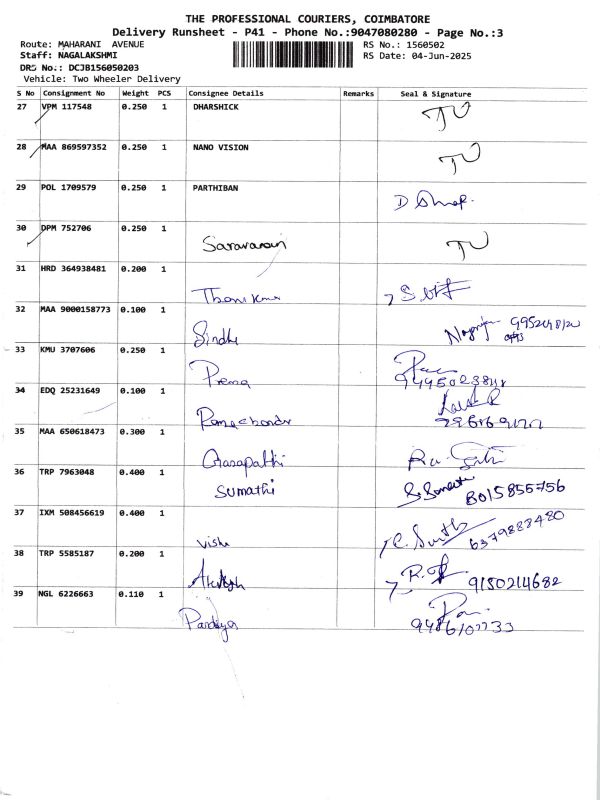 THE PROFESSIONAL COURIERS, COIMBATORE
Delivery Runsheet - P41 - Phone No.:9047080280 - Page No.:3
Route: MAHARANI AVENUE RS No.: 1560502
Staff: NAGALAKSHMI RS Date: 04-Jun-2025
DRS No.: DCJB156050203
Vehicle: Two Wheeler Delivery
S No Consignment No Weight PCS Consignee Details Remarks Seal & Signature
27 VPM 117548 0.250 1 DHARSHICK
28 MAA 869597352 0.250 1 NANO VISION
29 POL 1709579 0.250 1 PARTHIBAN
30 DPM 752706 0.250 1
Saravanan
31 HRD 364938481 0.200 1
Thanikumar
32 MAA 9000158773 0.100 1
Sindhu
33 KMU 3707606 0.250 1
Prema
34 EDQ 25231649 0.100 1
Ramachandr
35 MAA 650618473 0.300 1
Ganapathi
36 TRP 7963048 0.400 1
Sumathi 8015855756
37 IXM 508456619 0.400 1
6379883480
38 TRP 5585187 0.200 1
9150214682
39 NGL 6226663 0.110 1
Pandiya